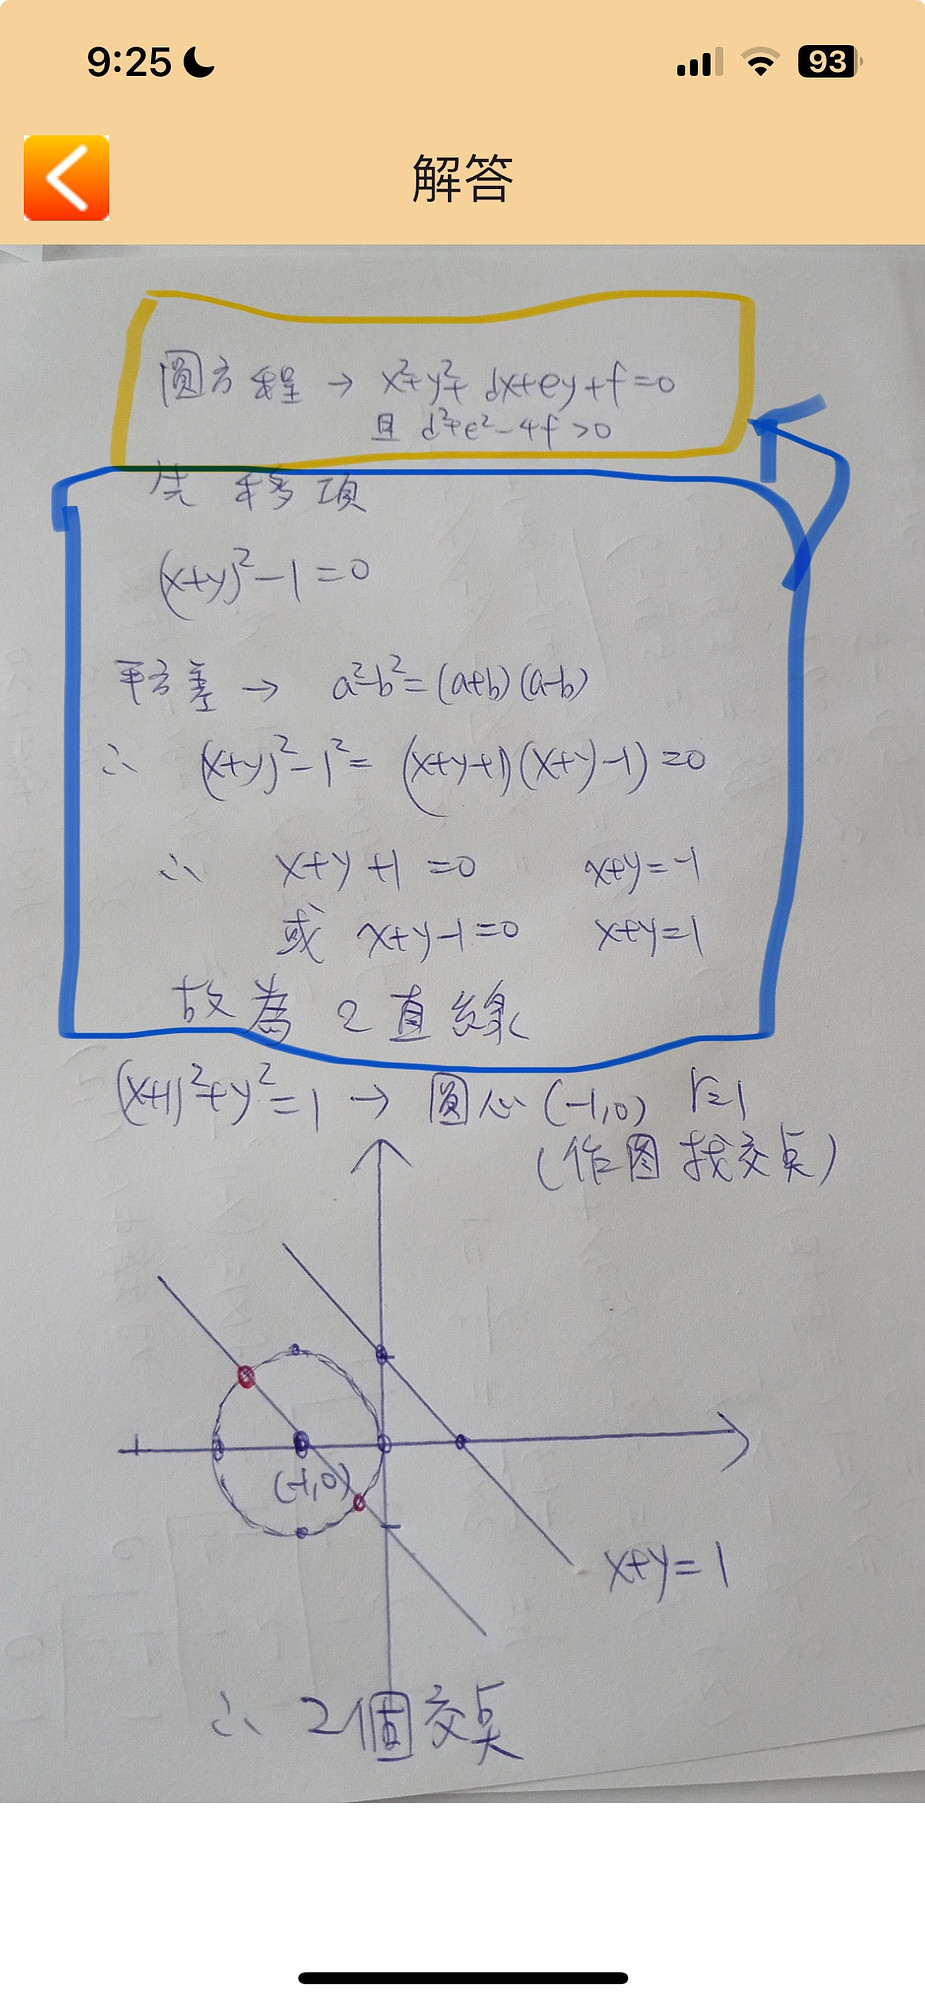 9:25
93
解答
圓方程 → x²+y²+dx+ey+f=0
且 d²+e²-4f>0
先移項
(x+y)²-1=0
平方差 → a²-b²=(a+b)(a-b)
∴ (x+y)²-1²= (x+y+1)(x+y-1)=0
∴ x+y+1=0 x+y=-1
或 x+y-1=0 x+y=1
故為2直線
(x+1)²+y²=1 → 圓心(-1,0) r=1
(作图找交点)
(-1,0)
x+y=1
∴ 2個交点